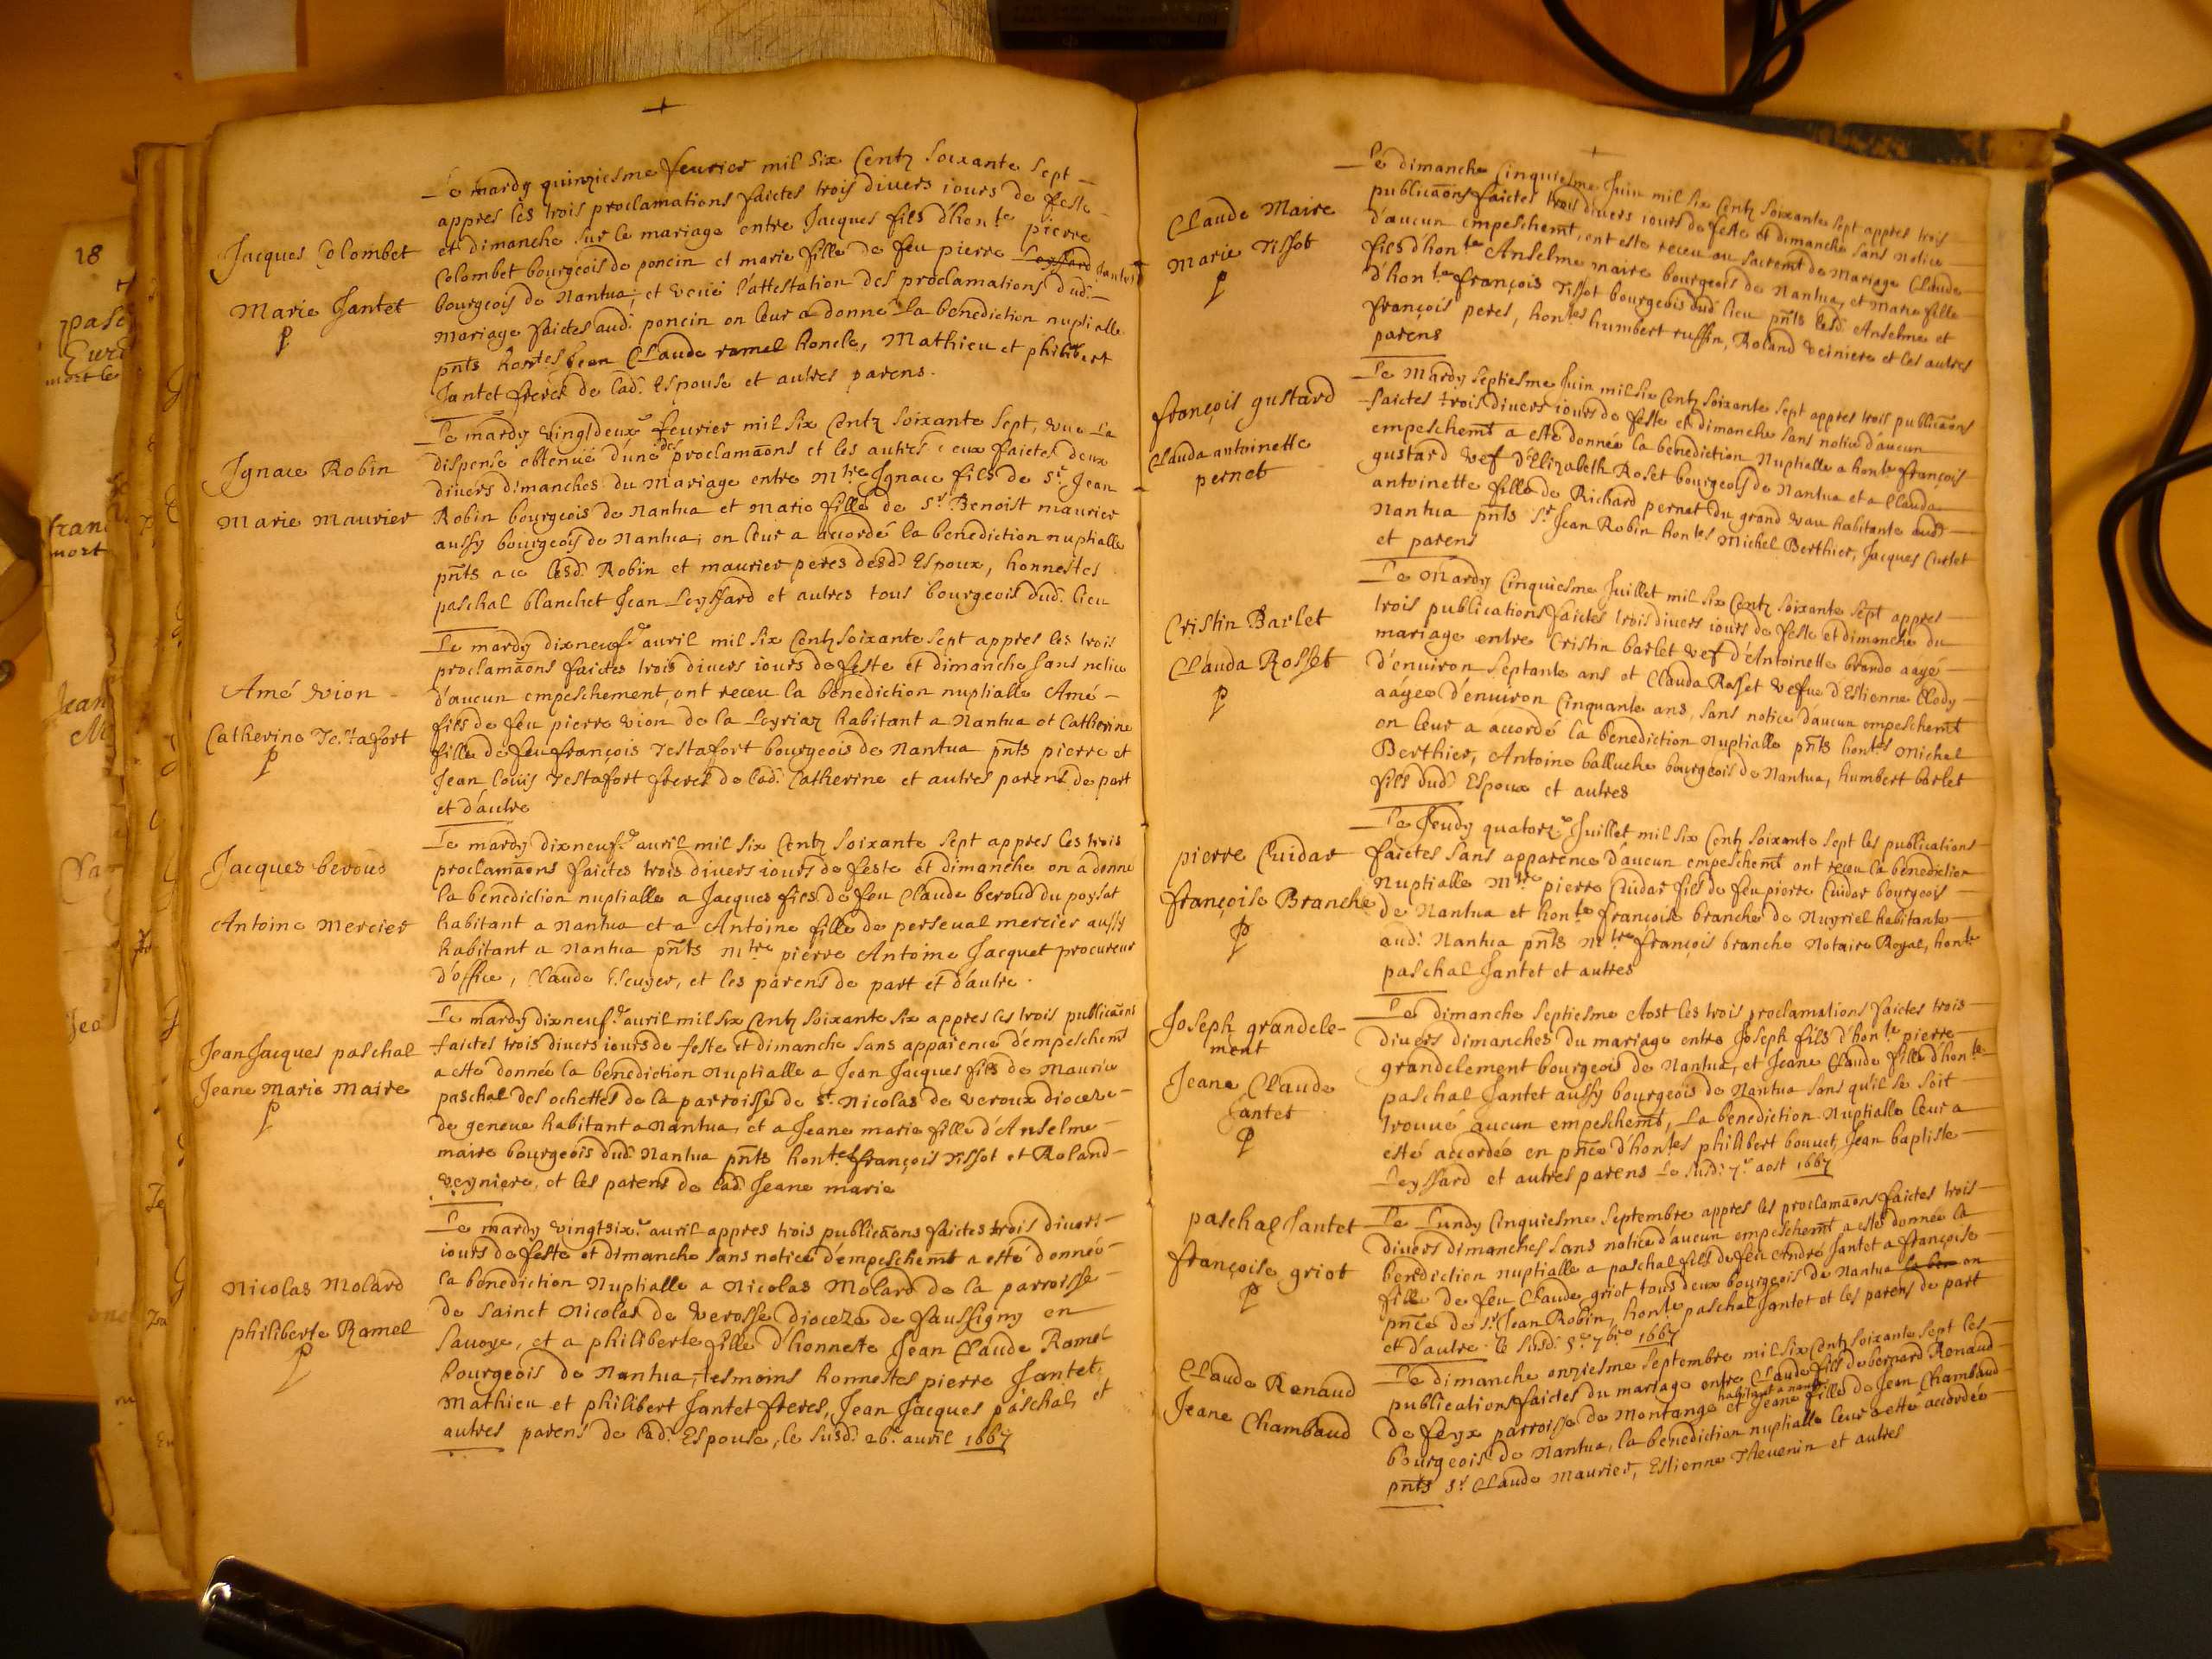 +
Le mardy quinziesme feurier mil six Centz soixante sept
appres les trois proclamations faictes trois divers iours de feste
et dimanche sur le mariage entre Jacques fils d'honte pierre
Jacques Colombet
Colombet bourgeois de poncin et marie fille de feu pierre Leyssard Jantet
Marie Jantet
bourgeois de Nantua, et veüe l'attestation des proclamations dud.
mariage faictes aud. poncin on leur a donné la benediction nuptialle
p
pnts hontes Claude ramel honcle, Mathieu et philibert
Jantet freres de lad. Espouse et autres parens.
Le mardy vingtdeuxe feurier mil six Centz soixante sept, vue la
dispense obtenüe d'une des proclamaons et les autres deux faictes deux
Ignace Robin
divers dimanches du mariage entre mtre Ignace fils de Sr. Jean
Marie Maurier
Robin bourgeois de Nantua et Marie fille de Sr Benoist maurier
aussy bourgeois de Nantua, on leur a accordé la benediction nuptialle
pnts a ce lesd. Robin et maurier peres desd. Espoux, honnestes
paschal blanchet Jean Leyssard et autres tous bourgeois dud. lieu
Le mardy dixneufe auril mil six Centz soixante sept appres les trois
proclamaons faictes trois divers iours de feste et dimanche sans notice
Amé vion
d'aucun empeschement, ont receu la benediction nuptialle Amé
fils de feu pierre vion de la Leyriaz habitant a Nantua et Catherine
Catherine Testafort
fille de feu françois Testafort bourgeois de Nantua pnts pierre et
p
Jean louis Testafort freres de lad. Catherine et autres parens de part
et d'autre
Le mardy dixneufe auril mil six Centz soixante sept appres les trois
Jacques beroud
proclamaons faictes trois divers iours de feste et dimanche on a donné
la benediction nuptialle a Jacques fils de feu Claude beroud du poysat
Antoine Mercier
habitant a Nantua et a Antoine fille de perseual mercier aussy
habitant a Nantua pnts mtre pierre Antoine Jacquet procureur
d'office, Claude Escuyer, et les parens de part et d'autre.
Le mardy dixneufe auril mil six Centz soixante six appres les trois publicaons
Jean Jacques paschal
faictes trois divers iours de feste et dimanche sans apparence d'empeschemt
Jeane Marie Maire
a esté donnée la benediction Nuptialle a Jean Jacques fils de Maurice
p
paschal des ochettes de la parroisse de St. Nicolas de veroux dioceze
de geneue habitant a Nantua, et a Jeane marie fille d'Anselme
maire bourgeois dud. Nantua pnts hontes françois Tissot et Roland
veyniere, et les parens de lad. Jeane marie
Le mardy vingtsixe auril appres trois publicaons faictes trois divers
iours de feste et dimanche sans notice d'empeschemt a esté donnée
Nicolas Molard
la benediction Nuptialle a Nicolas Molard de la parroisse
de sainct Nicolas de verosse dioceze de faussigny en
philiberte Ramel
Sauoye, et a philiberte fille d'honneste Jean Claude Ramel
p
bourgeois de Nantua, tesmoins honnestes pierre Jantet,
Mathieu et philibert Jantet freres, Jean Jacques paschal et
autres parens de lad. Espouse, le susd. 26e auril 1667
+
Le dimanche Cinquiesme Juin mil six Centz soixante sept appres trois
Claude Maire
publicaons faictes trois divers iours de feste et dimanche sans notice
Marie Tissot
d'aucun empeschemt, ont esté receu au sacremt de Mariage Claude
p
fils d'honte Anselme maire bourgeois de Nantua, et Marie fille
d'honte françois Tissot bourgeois dud. lieu pnts lesd. Anselme et
françois peres, hontes humbert ruffin, Roland veiniere et les autres
parens
Le Mardy Septiesme Juin mil six Centz soixante sept appres trois publicaons
françois gustard
faictes trois divers iours de feste et dimanche sans notice d'aucun
Clauda antoinette
empeschemt a esté donnée la benediction Nuptialle a honte françois
pernet
gustard vef d'Elizabeth Roset bourgeois de Nantua et a Clauda
antoinette fille de Richard pernet du grand vau habitante aud.
Nantua pnts Sr Jean Robin hontes Michel Berthier, Jacques Curlet
et parens
Le Mardy Cinquiesme Juillet mil six Centz soixante sept appres
Cristin Barlet
trois publications faictes trois divers iours de feste et dimanche du
mariage entre Cristin barlet vef d'Antoinette brando aagé
Clauda Rosset
d'enuiron septante ans et Clauda Rosset vefue d'Estienne Clody
p
aagée d'enuiron Cinquante ans, sans notice d'aucun empeschemt
on leur a accordé la benediction Nuptialle pnts hontes Michel
Berthier, Antoine balluche bourgeois de Nantua, humbert barlet
fils dud. Espoux et autres
Le Jeudy quatorze Juillet mil six Centz soixante sept les publications
pierre Cuidar
faictes sans apparence d'aucun empeschemt ont receu la benediction
Nuptialle mtre pierre Cuidar fils de feu pierre Cuidar bourgeois
françoise Branche
de Nantua et honte françoise branche de Nuyriel habitante
p
aud. Nantua pnts mtre françois branche Notaire Royal, honte
paschal Jantet et autres
Le dimanche Septiesme Aost les trois proclamations faictes trois
Joseph grandele-
ment
divers dimanches du mariage entre Joseph fils d'honte pierre
grandelement bourgeois de Nantua, et Jeane Claude fille d'honte
Jeane Claude
paschal Jantet aussy bourgeois de Nantua sans qu'il se soit
Jantet
trouué aucun empeschemt, La benediction Nuptialle leur a
p
esté accordée en pnce d'hontes philibert bouuet, Jean baptiste
Leyssard et autres parens Le susd. 7e aost 1667
paschal Jantet
Le Lundy Cinquiesme Septembre appres les proclamaons faictes trois
divers dimanches sans notice d'aucun empeschemt a esté donnée la
françoise griot
benediction nuptialle a paschal fils de feu André Jantet a françoise
p
fille de feu Claude griot tous deux bourgeois de Nantua la ben on
pnce de Sr Jean Robin, honte paschal Jantet et les parens de part
et d'autre. le susd. 5e 7bre 1667
Le dimanche onziesme Septembre mil six Centz soixante sept les
Claude Renaud
publications faictes du mariage entre Claude fils de bernard Renaud
Jeane Chambaud
de feyx parroisse de Montange habitant a nantua et Jeane fille de Jean Chambaud
bourgeois de Nantua, la benediction nuptialle leur a esté accordée
pnts Sr Claude Maurier, Estienne Thevenin et autres
18